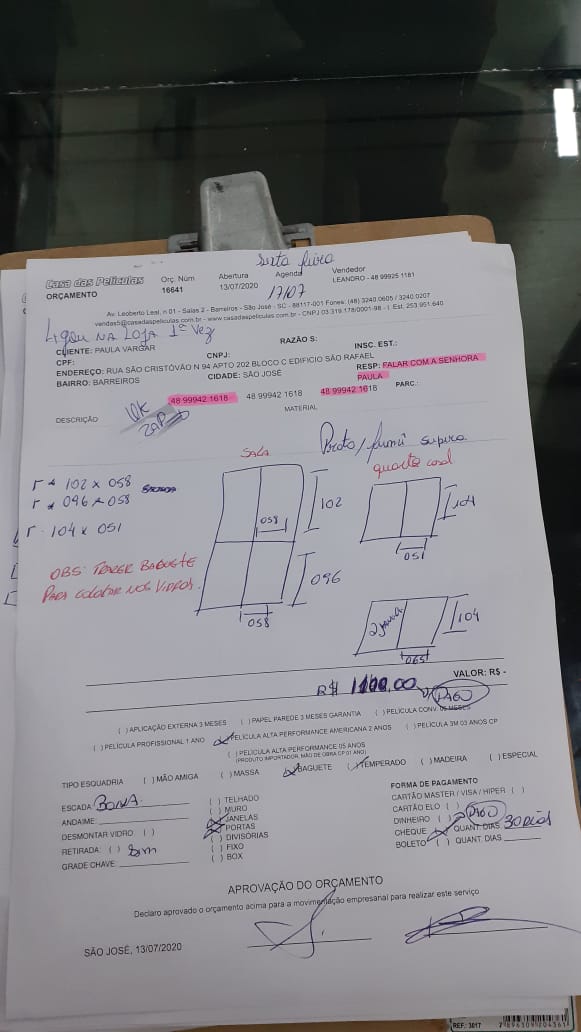 sexta feira
Casa das Películas
Orç. Núm
Abertura
Agenda
Vendedor
ORÇAMENTO
16641
13/07/2020
17/07
LEANDRO - 48 99925 1181
Av. Leoberto Leal, n 01 - Salas 2 - Barreiros - São José - SC - 88117-001 Fones: (48) 3240.0605 / 3240.0207
vendas5@casadaspeliculas.com.br - www.casadaspeliculas.com.br - CNPJ 03.319.178/0001-98 - I. Est. 253.951.640
LIGOU NA LOJA 1ª VEZ
CLIENTE: PAULA VARGAR
RAZÃO S:
CPF:
CNPJ:
INSC. EST.:
ENDEREÇO: RUA SÃO CRISTÓVÃO N 94 APTO 202 BLOCO C EDIFICIO SÃO RAFAEL
BAIRRO: BARREIROS
CIDADE: SÃO JOSÉ
RESP: FALAR COM A SENHORA
PAULA
48 99942 1618
48 99942 1618
48 99942 1618
PARC.:
DESCRIÇÃO
OK
ZAP
MATERIAL
SALA
quarto casal
102 x 058
096 x 058
104 x 051
102
058
104
051
096
058
OBS: TRAZER BAGUETE
PARA COLOCAR NOS VIDROS.
104
065
VALOR: R$ -
PAGO
( ) APLICAÇÃO EXTERNA 3 MESES
( ) PAPEL PAREDE 3 MESES GARANTIA
( ) PELÍCULA CONV. 06 MESES
( ) PELÍCULA PROFISSIONAL 1 ANO
PELÍCULA ALTA PERFORMANCE AMERICANA 2 ANOS
( ) PELÍCULA 3M 03 ANOS CP
( ) PELÍCULA ALTA PERFORMANCE 05 ANOS
(PRODUTO IMPORTADOR, MÃO DE OBRA CP 01 ANO)
TIPO ESQUADRIA
( ) MÃO AMIGA
( ) MASSA
BAGUETE
TEMPERADO
( ) MADEIRA
( ) ESPECIAL
ESCADA: BONA
( ) TELHADO
FORMA DE PAGAMENTO
ANDAIME:
( ) MURO
CARTÃO MASTER / VISA / HIPER ( )
DESMONTAR VIDRO: ( )
JANELAS
CARTÃO ELO ( )
RETIRADA: ( ) Sim
PORTAS
DINHEIRO ( ) PAGO
GRADE CHAVE:
( ) DIVISÓRIAS
CHEQUE QUANT. DIAS 30 DIAS
( ) FIXO
BOLETO ( ) QUANT. DIAS
( ) BOX
APROVAÇÃO DO ORÇAMENTO
Declaro aprovado o orçamento acima para a movimentação empresarial para realizar este serviço
SÃO JOSÉ, 13/07/2020
REF.: 3017